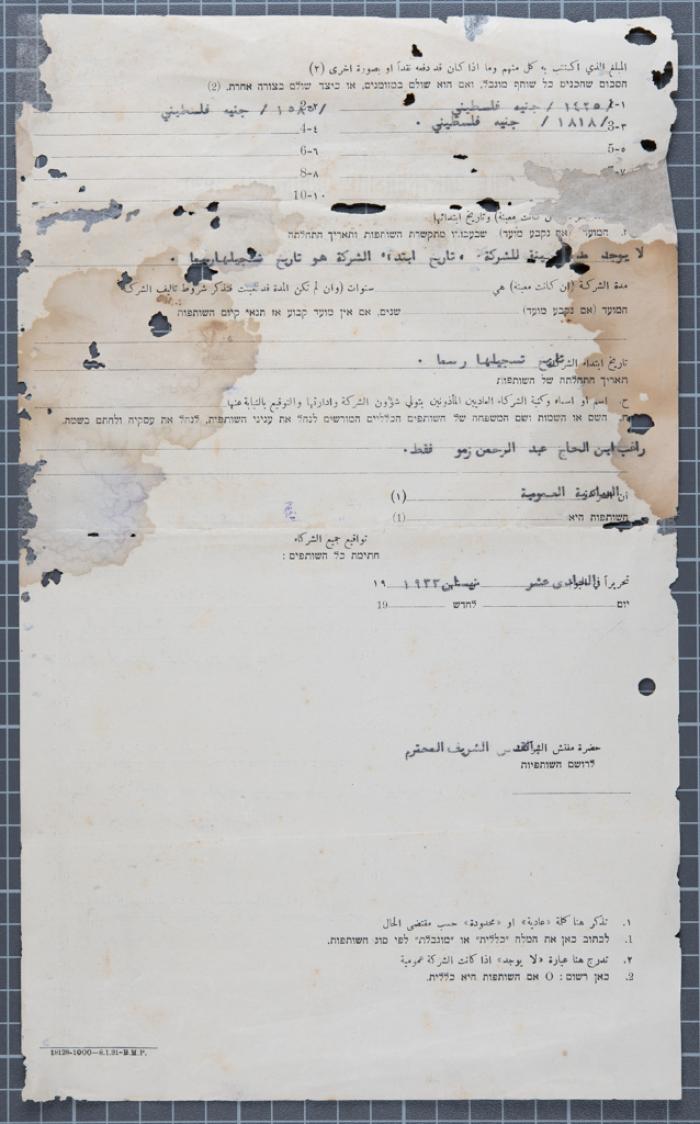 المبلغ الذي اكتتب به كل منهم وما اذا كان قد دفعه نقداً او بصورة اخرى (٢)
הסכום שהכניס כל שותף מוגבל, ואם הוא שולם במזומנים, או כיצד שולם בצורה אחרת. (2)
١- /١٤٢٥/ جنيه فلسطيني 2- جنيه فلسطيني
3-٣ /١٨١٨/ جنيه فلسطيني . 4-٤
5-٥ 6-٦
8-٨
10-١٠
كانت معينة) وتاريخ ابتدائها
ז. המועד (אם נקבע מועד) שבעבורו מתקשרת השותפות ותאריך התחלתה
لا يوجد للشركة . تاريخ ابتداء الشركة هو تاريخ تسجيلها رسما .
مدة الشركة (ان كانت معينة) هي سنوات (وان لم تكن المدة قد عينت فتذكر شروط تأليف الشركة
המועד (אם נקבע מועד) שנים, אם אין מועד קבוע אז תנאי קיום השותפות
تاريخ ابتداء الشركة تاريخ تسجيلها رسما .
תאריך התחלתה של השותפות
ح. اسم او اسماء وكنية الشركاء العاديين المأذونين بتولي شؤون الشركة وادارتها والتوقيع بالنيابة عنها
השם או השמות ושם המשפחה של השותפים הכלליים המורשים לנהל את עניני השותפות, לנהל את עסקיה ולחתם בשמה.
راغب ابن الحاج عبد الرحمن زمو فقط.
ان العمومية (١)
השותפות היא (1)
تواقيع جميع الشركاء
חתימת כל השותפים :
تحريراً في الحادى عشر نيسان ١٩٣٢ ١٩
יום לחדש 19
حضرة مفتش الشركات الشريف المحترم
לרושם השותפיות
١. تذكر هنا كلمة «عادية» او «محدودة» حسب مقتضى الحال
1. לכתוב כאן את המלה "כללית" או "מוגבלת" לפי סוג השותפות.
٢. تدرج هنا عبارة «لا يوجد» اذا كانت الشركة عمومية
2. כאן רשום : O אם השותפות היא כללית.
18129-1000—8.1.31-B.M.P.